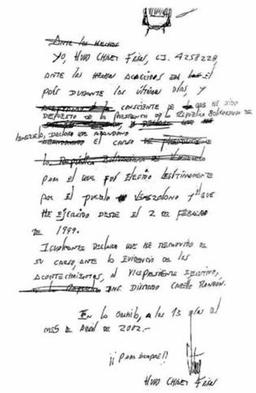 Ante los hechos
Yo, Hugo Chávez Frías, C.I. 4258228,
ante los hechos acaecidos en el
país durante los últimos días, y
consciente de que he sido
depuesto de la Presidencia de la República Bolivariana de
Venezuela, declaro que abandono
el cargo de
la República Bolivariana de Venezuela
para el que fui electo legítimamente
por el pueblo venezolano y que
he ejercido desde el 2 de febrero
de 1999.
Igualmente declaro que he removido de
su cargo, ante la evidencia de los
acontecimientos, al Vicepresidente Ejecutivo,
Ing. Diosdado Cabello Rondón.
En la Orchila, a los 13 días del
mes de abril de 2002.-
¡¡Para siempre!!
Hugo Chávez Frías